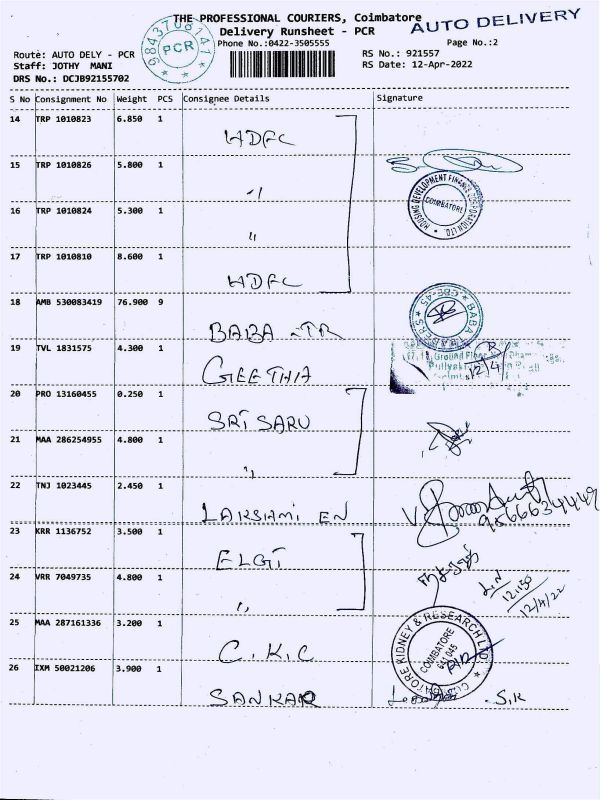 THE PROFESSIONAL COURIERS, Coimbatore
AUTO DELIVERY
Delivery Runsheet - PCR
Phone No.:0422-3505555
Page No.:2
PCR
Routè: AUTO DELY - PCR
Staff: JOTHY MANI
DRS No.: DCJB92155702
RS No.: 921557
RS Date: 12-Apr-2022
S No Consignment No Weight PCS Consignee Details Signature
14 TRP 1010823 6.850 1 HDFC
15 TRP 1010826 5.800 1 "
16 TRP 1010824 5.300 1 "
HOUSING DEVELOPMENT FINANCE CORPORATION LTD.
COIMBATORE
17 TRP 1010810 8.600 1 HDFC
18 AMB 530083419 76.900 9 BABA
BABA
19 TVL 1831575 4.300 1 GEETHA
Ground Floor
12/4
20 PRO 13160455 0.250 1 SRI SARU
21 MAA 286254955 4.800 1 "
22 TNJ 1023445 2.450 1 LAKSHMI EN
9566634449
23 KRR 1136752 3.500 1 ELGI
24 VRR 7049735 4.800 1 "
12:50
12/4/22
25 MAA 287161336 3.200 1 C.K.C
KIDNEY & RESEARCH
COIMBATORE
641 045
26 IXM 50021206 3.900 1 SANKAR
S.K